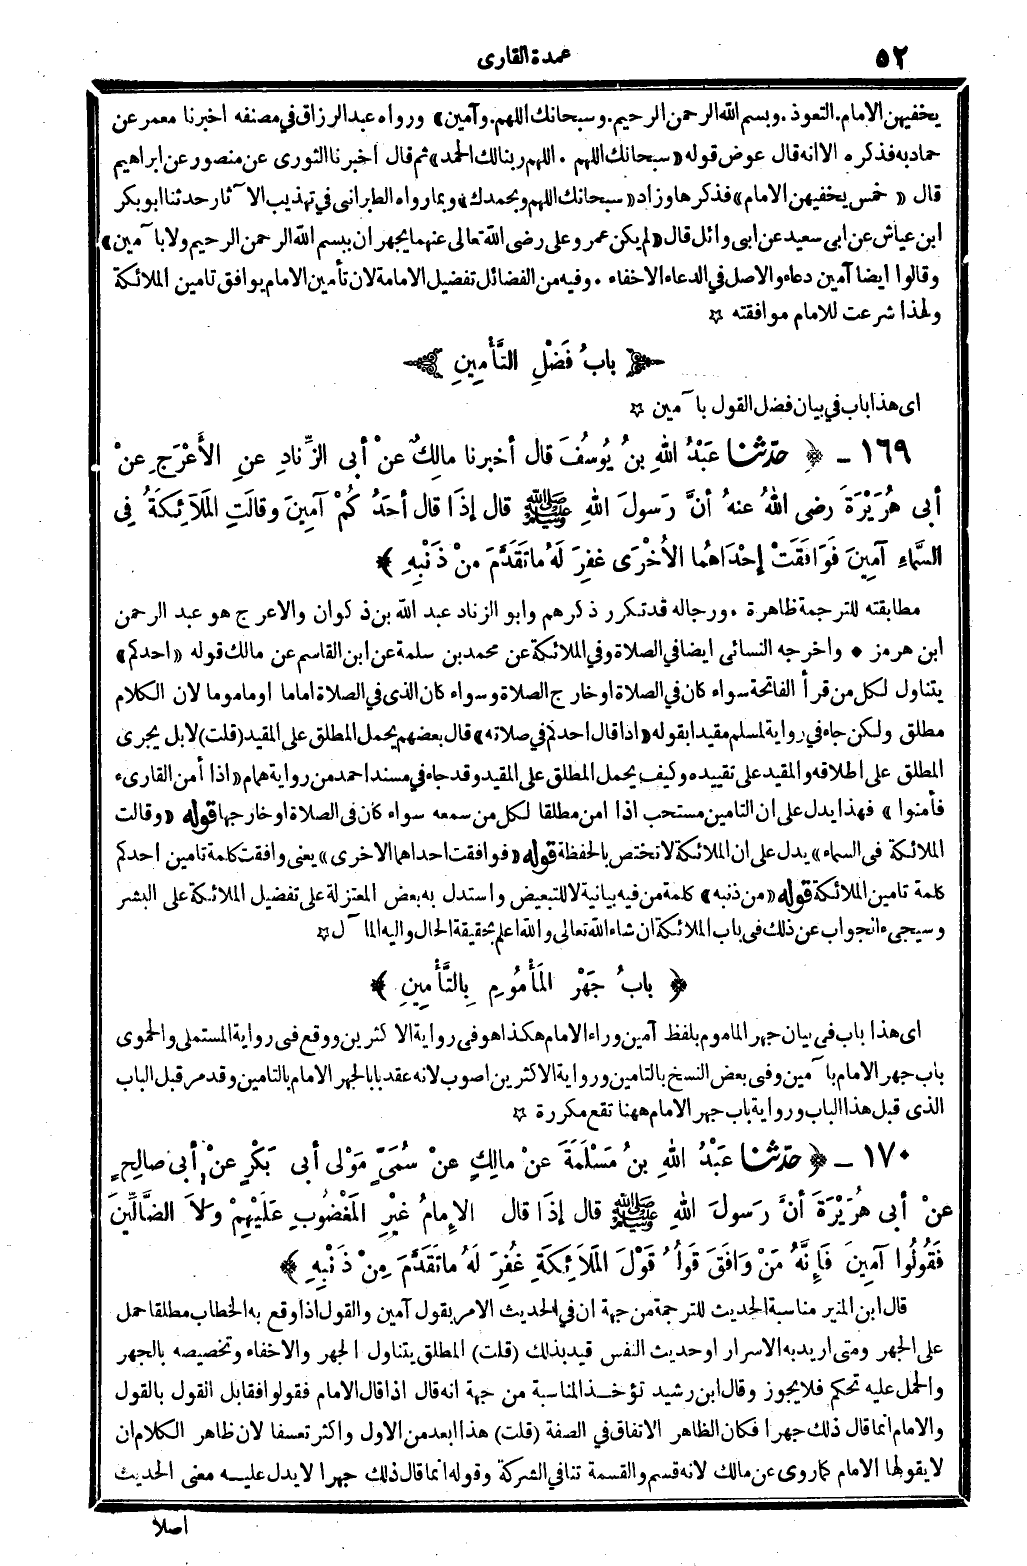 ٥٢
عمدة القارى
يخفيهن الامام. التعوذ. وبسم الله الرحمن الرحيم. وسبحانك اللهم. وآمين» ورواه عبد الرزاق في مصنفه اخبرنا معمر عن
حماد به فذكره الا انه قال عوض قوله «سبحانك اللهم. اللهم ربنا لك الحمد» ثم قال اخبرنا الثورى عن منصور عن ابراهيم
قال «خمس يخفيهن الامام» فذكرها وزاد «سبحانك اللهم وبحمدك» وبما رواه الطبرانى في تهذيب الآثار حدثنا ابو بكر
ابن عياش عن ابى سعيد عن ابى وائل قال «لم يكن عمر وعلى رضى الله تعالى عنهما يجهران ببسم الله الرحمن الرحيم ولا بآمين»
وقالوا ايضا آمين دعاء والاصل في الدعاء الاخفاء. وفيه من الفضائل تفضيل الامامة لان تأمين الامام يوافق تامين الملائكة
ولهذا شرعت للامام موافقته ☆
﴿ بابُ فَضْلِ التَّأْمِينِ ﴾
اى هذا باب في بيان فضل القول بآمين ☆
١٦٩ ـ ﴿ حدّثنا عَبْدُ اللهِ بنُ يُوسُفَ قال أخبرنا مالِكٌ عنْ أبى الزِّنادِ عنِ الأَعْرَجِ عنْ
أبى هُرَيْرَةَ رضى اللهُ عنهُ أنَّ رَسولَ اللهِ ﷺ قال إذَا قال أحَدُكُمْ آمِينَ وقالَتِ المَلَائِكَةُ فِى
السَّماءِ آمِينَ فَوَافَقَتْ إحْدَاهُما الأُخْرَى غفِرَ لَهُ ماتَقَدَّمَ مِنْ ذَنْبِهِ ﴾
مطابقته للترجمة ظاهرة. ورجاله قد تكرر ذكرهم وابو الزناد عبد الله بن ذكوان والاعرج هو عبد الرحمن
ابن هرمز • واخرجه النسائى ايضا في الصلاة وفي الملائكة عن محمد بن سلمة عن ابن القاسم عن مالك قوله «احدكم»
يتناول لكل من قرأ الفاتحة سواء كان في الصلاة او خارج الصلاة وسواء كان الذى في الصلاة اماما او ماموما لان الكلام
مطلق ولكن جاء في رواية لمسلم مقيدا بقوله «اذا قال احدكم في صلاته» قال بعضهم يحمل المطلق على المقيد (قلت) لا بل يجرى
المطلق على اطلاقه والمقيد على تقييده وكيف يحمل المطلق على المقيد وقد جاء في مسند احمد من رواية همام «اذا أمن القارىء
فأمنوا» فهذا يدل على ان التامين مستحب اذا امن مطلقا لكل من سمعه سواء كان فى الصلاة او خارجها قوله «وقالت
الملائكة فى السماء» يدل على ان الملائكة لا تختص بالحفظة قوله «فوافقت احداهما الاخرى» يعنى وافقت كلمة تامين احدكم
كلمة تامين الملائكة قوله «من ذنبه» كلمة من فيه بيانية لا للتبعيض واستدل به بعض المعتزلة على تفضيل الملائكة على البشر
وسيجىء الجواب عن ذلك فى باب الملائكة ان شاء الله تعالى والله اعلم بحقيقة الحال واليه المآل ☆
﴿ بابُ جَهْرِ المَأْمُومِ بِالتَّأْمِينِ ﴾
اى هذا باب في بيان جهر الماموم بلفظ آمين وراء الامام هكذا هو فى رواية الاكثرين ووقع فى رواية المستملى والحموى
باب جهر الامام بآمين وفى بعض النسخ بالتامين ورواية الاكثرين اصوب لانه عقد بابا لجهر الامام بالتامين وقد مر قبل الباب
الذى قبل هذا الباب ورواية باب جهر الامام ههنا تقع مكررة ☆
١٧٠ ـ ﴿ حدّثنا عَبْدُ اللهِ بنُ مَسْلَمَةَ عَنْ مالِكٍ عنْ سُمَىٍّ مَوْلى أبى بَكْرٍ عنْ أبى صالِحٍ
عنْ أبى هُرَيْرَةَ أنَّ رَسولَ اللهِ ﷺ قال إذَا قال الإمامُ غَيْرِ المَغْضُوبِ عَلَيْهِمْ وَلاَ الضَّالِّينَ
فَقُولُوا آمِينَ فَإِنَّهُ مَنْ وَافَقَ قَوْلُهُ قَوْلَ المَلَائِكَةِ غُفِرَ لَهُ ماتَقَدَّمَ مِنْ ذَنْبِهِ ﴾
قال ابن المنير مناسبة الحديث للترجمة من جهة ان في الحديث الامر بقول آمين والقول اذا وقع به الخطاب مطلقا حمل
على الجهر ومتى اريد به الاسرار او حديث النفس قيد بذلك (قلت) المطلق يتناول الجهر والاخفاء وتخصيصه بالجهر
والحمل عليه تحكم فلا يجوز وقال ابن رشيد تؤخذ المناسبة من جهة انه قال اذا قال الامام فقولوا فقابل القول بالقول
والامام انما قال ذلك جهرا فكان الظاهر الاتفاق في الصفة (قلت) هذا ابعد من الاول واكثر تعسفا لان ظاهر الكلام ان
لا يقولها الامام كما روى عن مالك لانه قسم والقسمة تنافي الشركة وقوله انما قال ذلك جهرا لا يدل عليه معنى الحديث
اصلا